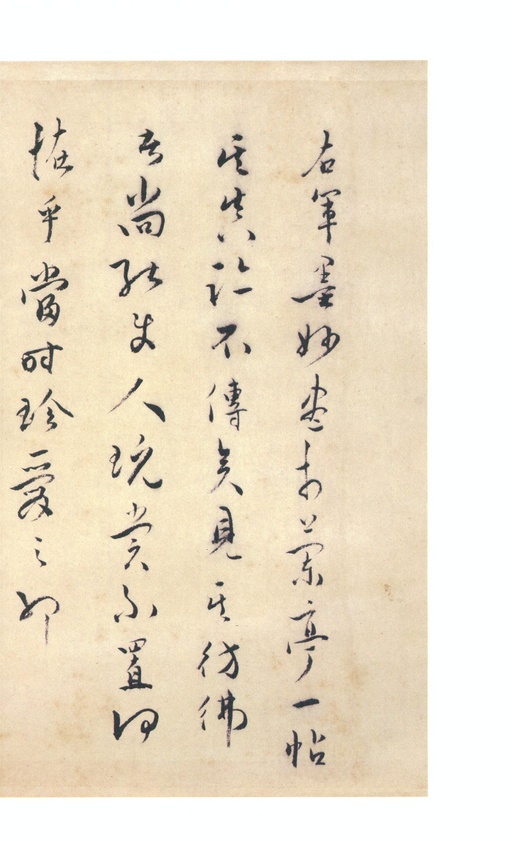 右軍墨妙盡於蘭亭一帖
其真跡不傳矣見其彷彿
者尚能使人玩賞不置何
怪乎當時珍愛之耶